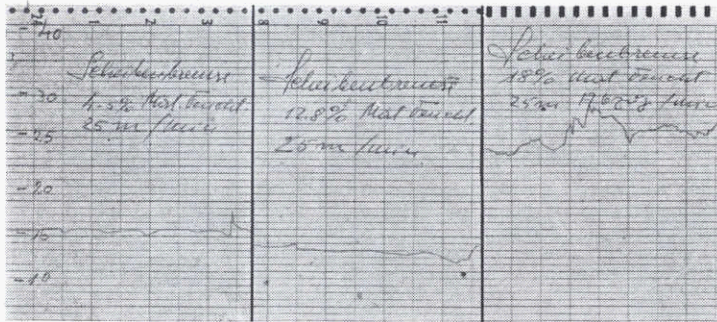 1
2
3
8
9
10
11
40
30
25
20
15
10
Scheibenbremse
4.5% Mat. feucht
25 m/min
Scheibenbremse
12.8% Mat feucht
25 m/min
Scheibenbremse
18% Mat feucht
25 m /min